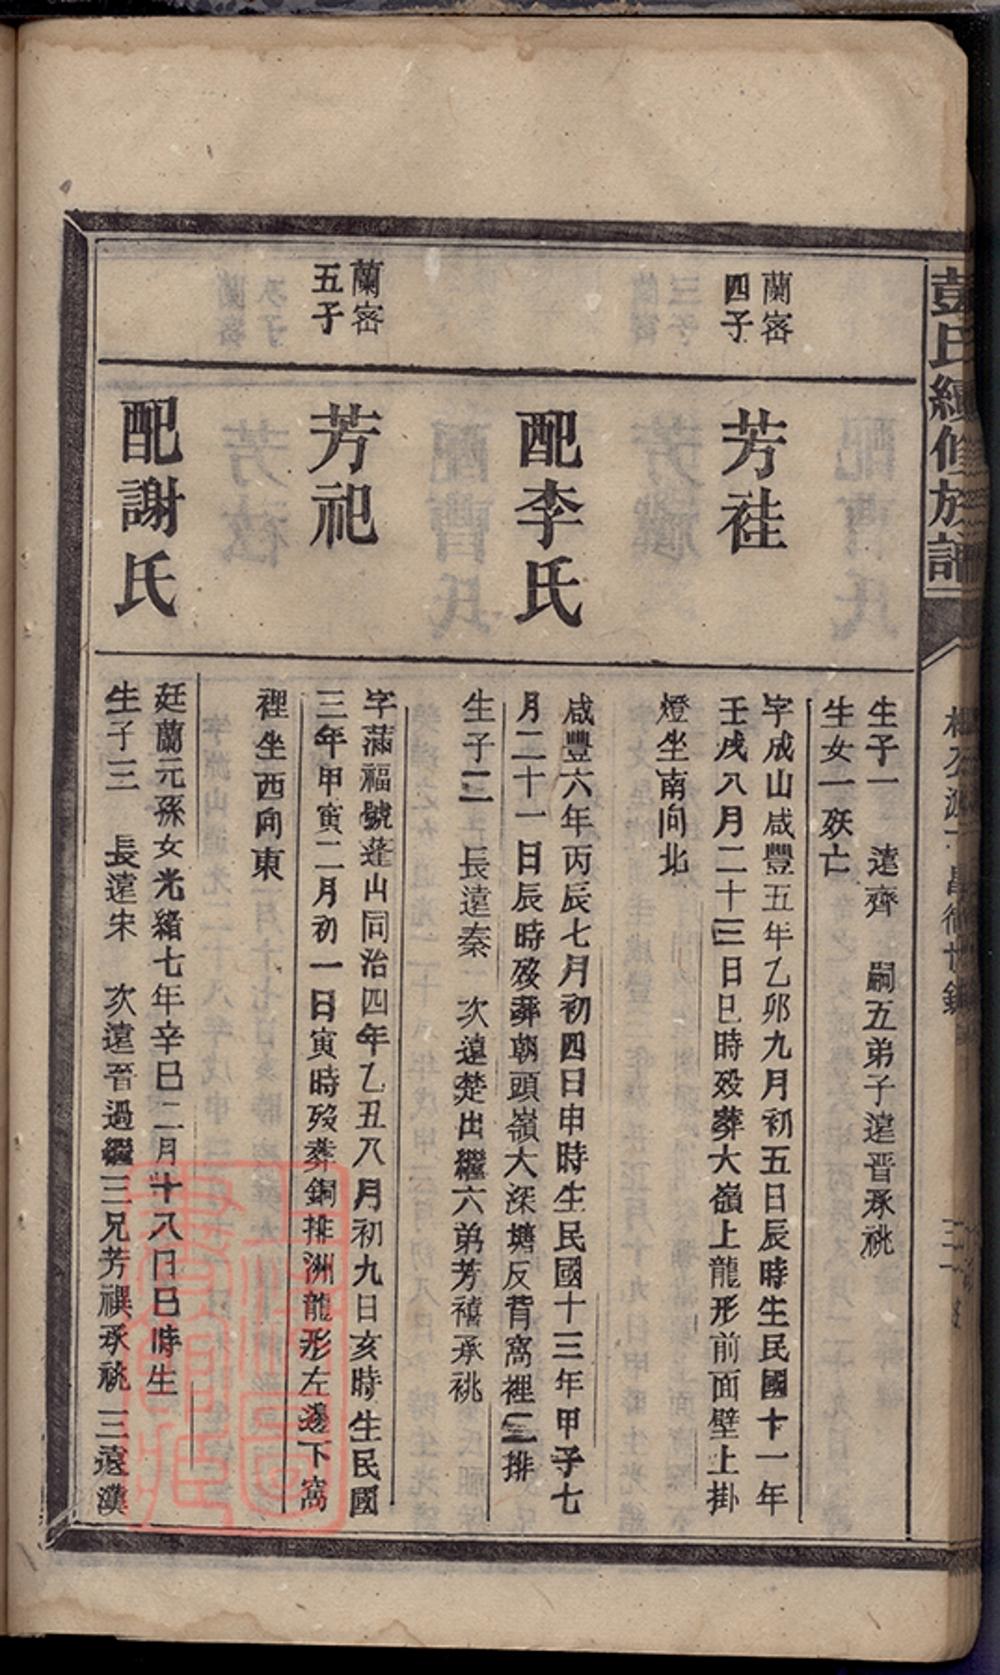 彭氏續修族譜
生子一　遠齊　嗣五弟子遠晉承祧
生女一殀亡
蘭密
四子
芳祍
字成山咸豐五年乙卯九月初五日辰時生民國十一年
壬戌八月二十三日巳時歿葬大嶺上龍形前面壁上掛
燈坐南向北
配李氏
咸豐六年丙辰七月初四日申時生民國十三年甲子七
月二十一日辰時歿葬朝頭嶺大深塘反背窩裡二排
生子二　長遠秦　次遠楚出繼六弟芳禧承祧
蘭密
五子
芳祀
字滿福號蓬山同治四年乙丑八月初九日亥時生民國
三年甲寅二月初一日寅時歿葬銅排洲龍形左邊下窩
裡坐西向東
配謝氏
廷蘭元孫女光緒七年辛巳二月十八日巳時生
生子三　長遠宋　次遠晉過繼三兄芳禩承祧　三遠漢